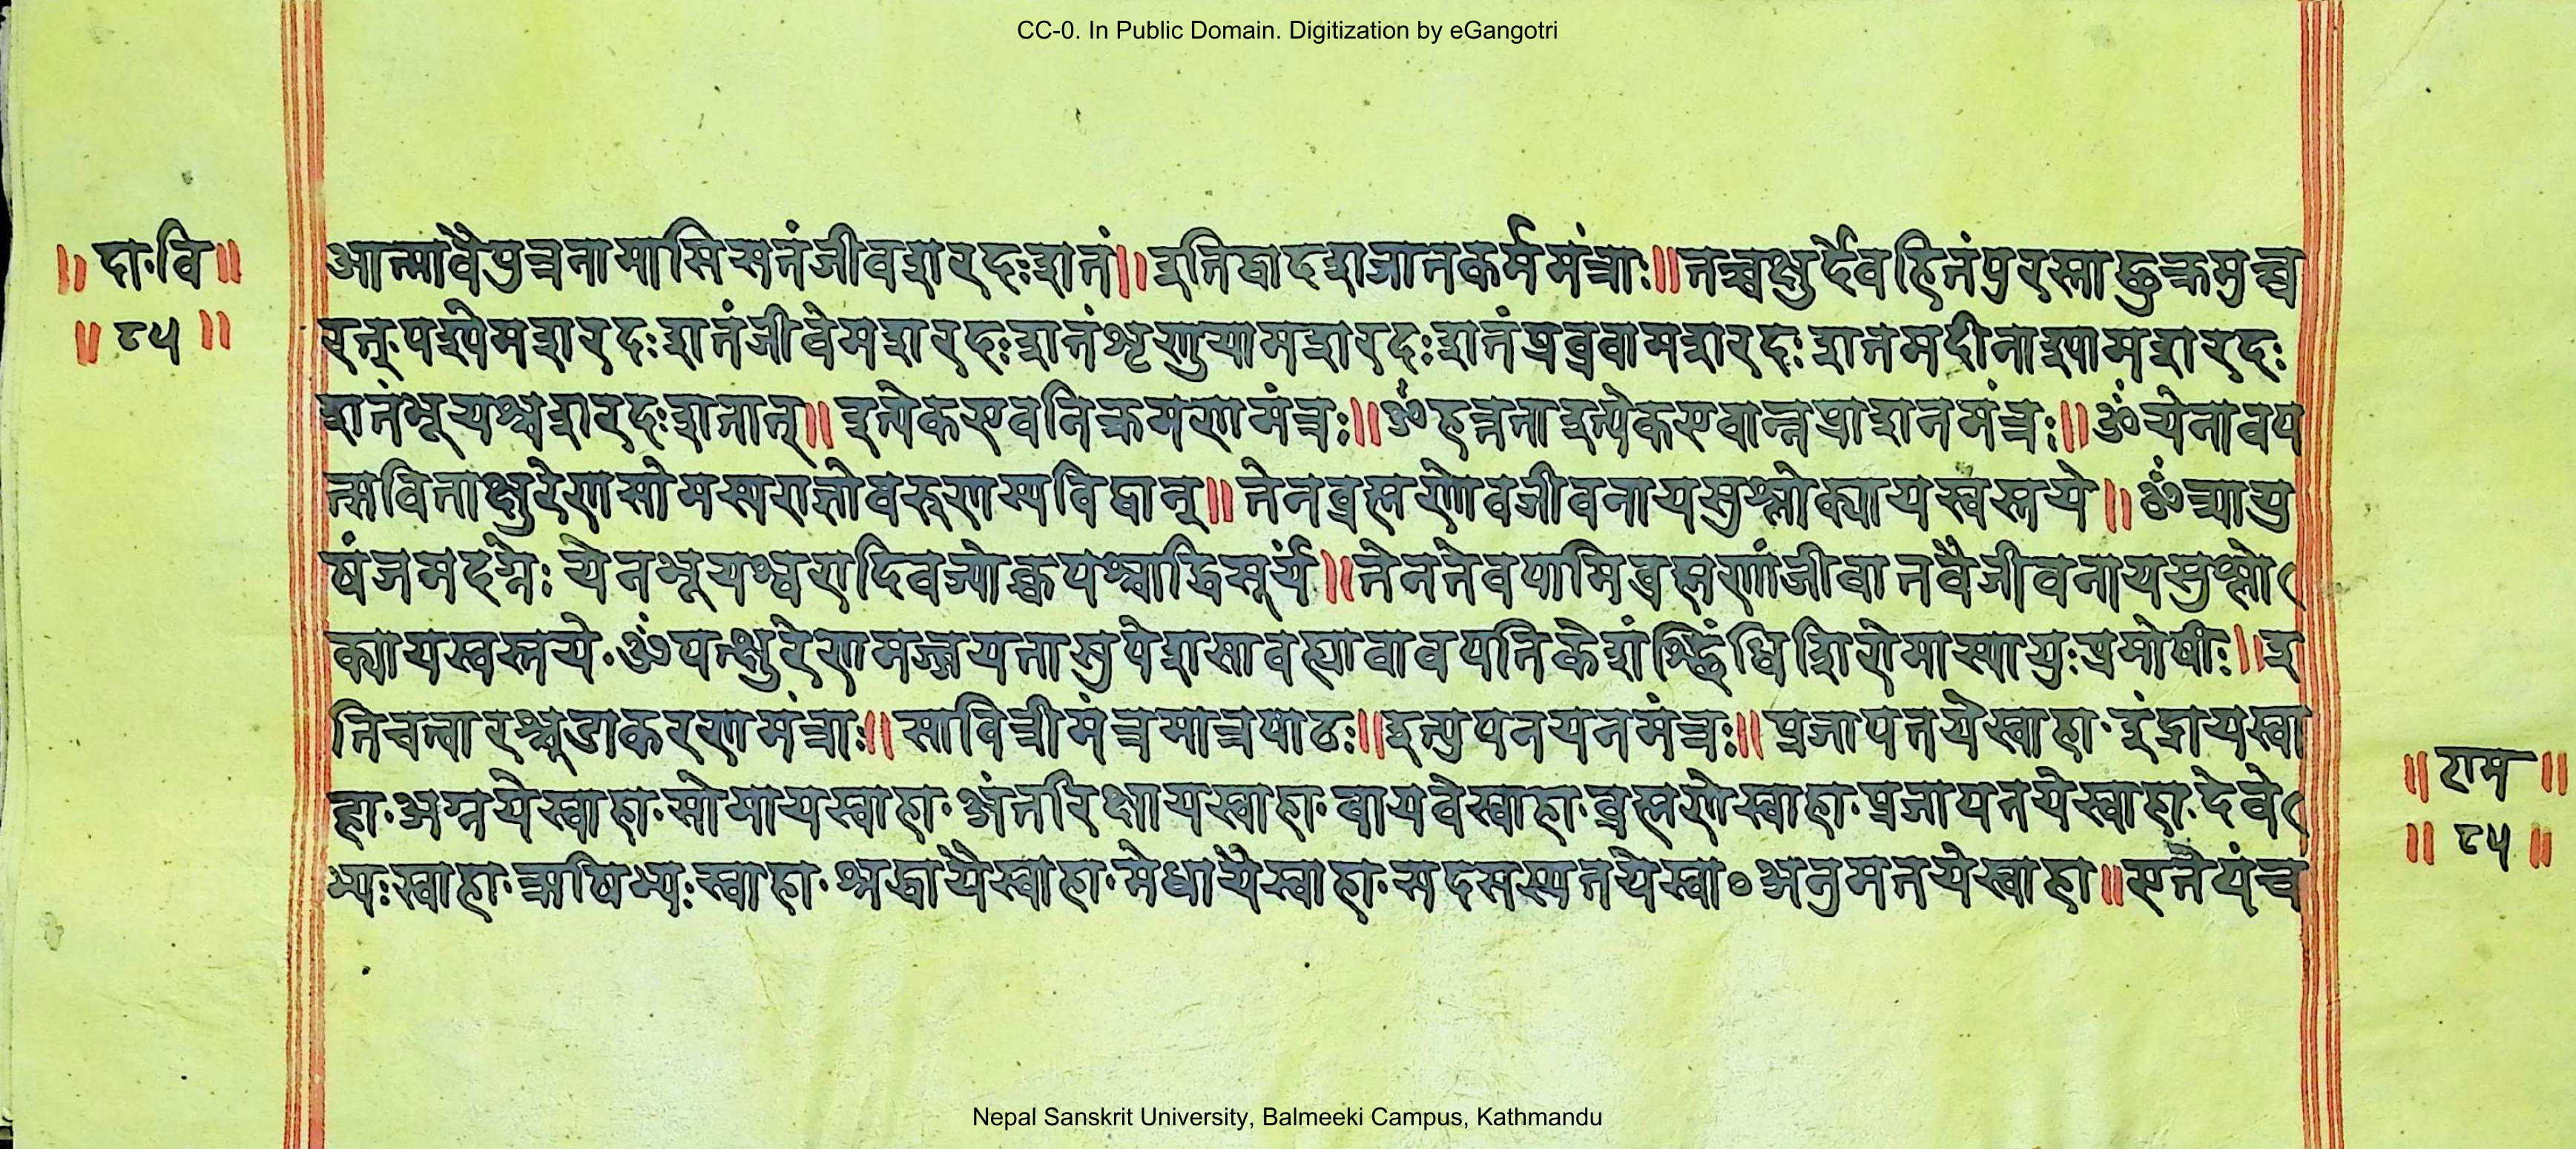 CC-0. In Public Domain. Digitization by eGangotri
॥ दा॰वि ॥
॥ ८५ ॥
आत्मावैपुत्रनामासिसतंजीवशरदःशतं॥इतिद्वादशजातकर्ममंत्राः॥तच्चक्षुर्देवहितंपुरस्ताच्छुक्रमुच्च
रत्॰पश्येमशरदःशतंजीवेमशरदःशतंशृणुयामशरदःशतंप्रब्रवामशरदःशतमदीनाश्यामशरदः
शतंभूयश्चशरदःशतात्॥इत्येकएवनिक्रमणमंत्रः॥ॐहन्नताइत्येकएवान्नप्राशनमंत्रः॥ॐयेनावप
त्सविताक्षुरेणसोमस्यराज्ञोवरुणस्यविद्वान्॥तेनब्रह्मणोवजीवनायसुश्लोक्यायस्वस्तये॥ॐत्र्यायु
षंजमदग्नेःयेनभूयश्चरादिवज्योक्चपश्चाद्धिसूर्यं॥तेनतेवपामिब्रह्मणांजीवातवैजीवनायसुश्लो
क्यायस्वस्तये॰ॐयत्क्षुरेणमज्जयतासुपेशसावप्त्वावावपतिकेशांश्छिंधिशिरोमास्यायुःप्रमोषीः॥इ
तिचत्वारश्चूडाकरणमंत्राः॥सावित्रीमंत्रमात्रपाठः॥इत्युपनयनमंत्रः॥प्रजापतयेस्वाहा॰इंद्रायस्वा
हा॰अग्नयेस्वाहा॰सोमायस्वाहा॰अंतरिक्षायस्वाहा॰वायवेस्वाहा॰ब्रह्मणेस्वाहा॰प्रजापतयेस्वाहा॰देवे
भ्यःस्वाहा॰ऋषिभ्यःस्वाहा॰श्रद्धायैस्वाहा॰मेधायैस्वाहा॰सदसस्पतयेस्वा०अनुमतयेस्वाहा॥एतैयंच
॥ राम ॥
॥ ८५ ॥
Nepal Sanskrit University, Balmeeki Campus, Kathmandu